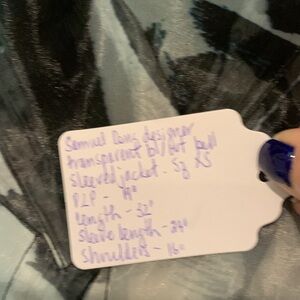 Samuel Dong designer
transparent bl/wht bell
sleeved jacket. Sz XS
P2P - 19"
length - 32"
Sleeve length - 24"
Shoulders - 16"